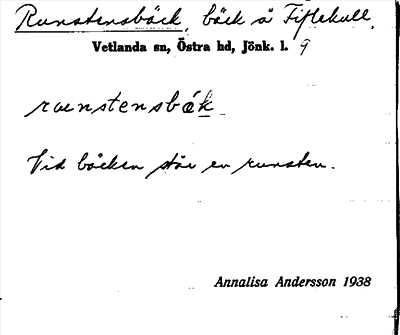 Runstensbäck, bäck å Fiflekull,
Vetlanda sn, Östra hd, Jönk. l. 9
runstensbäk
Vid bäcken står en runsten.
Annalisa Andersson 1938